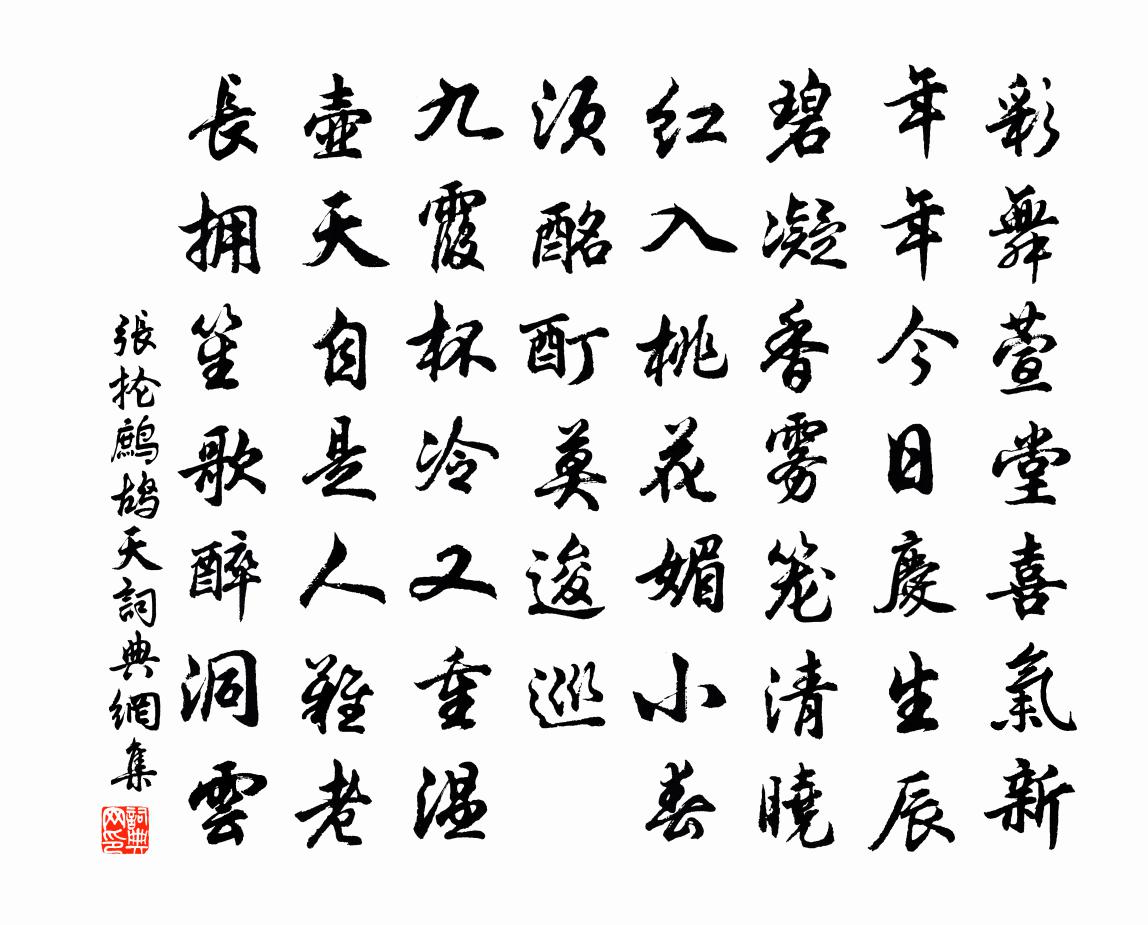 彩舞萱堂喜氣新
年年今日慶生辰
碧凝香雾笼清曉
红入桃花媚小春
须酩酊莫逡巡
九霞杯冷又重温
壺天自是人難老
長拥笙歌醉洞雲
張抡鷓鴣天詞典網集
詞典网印